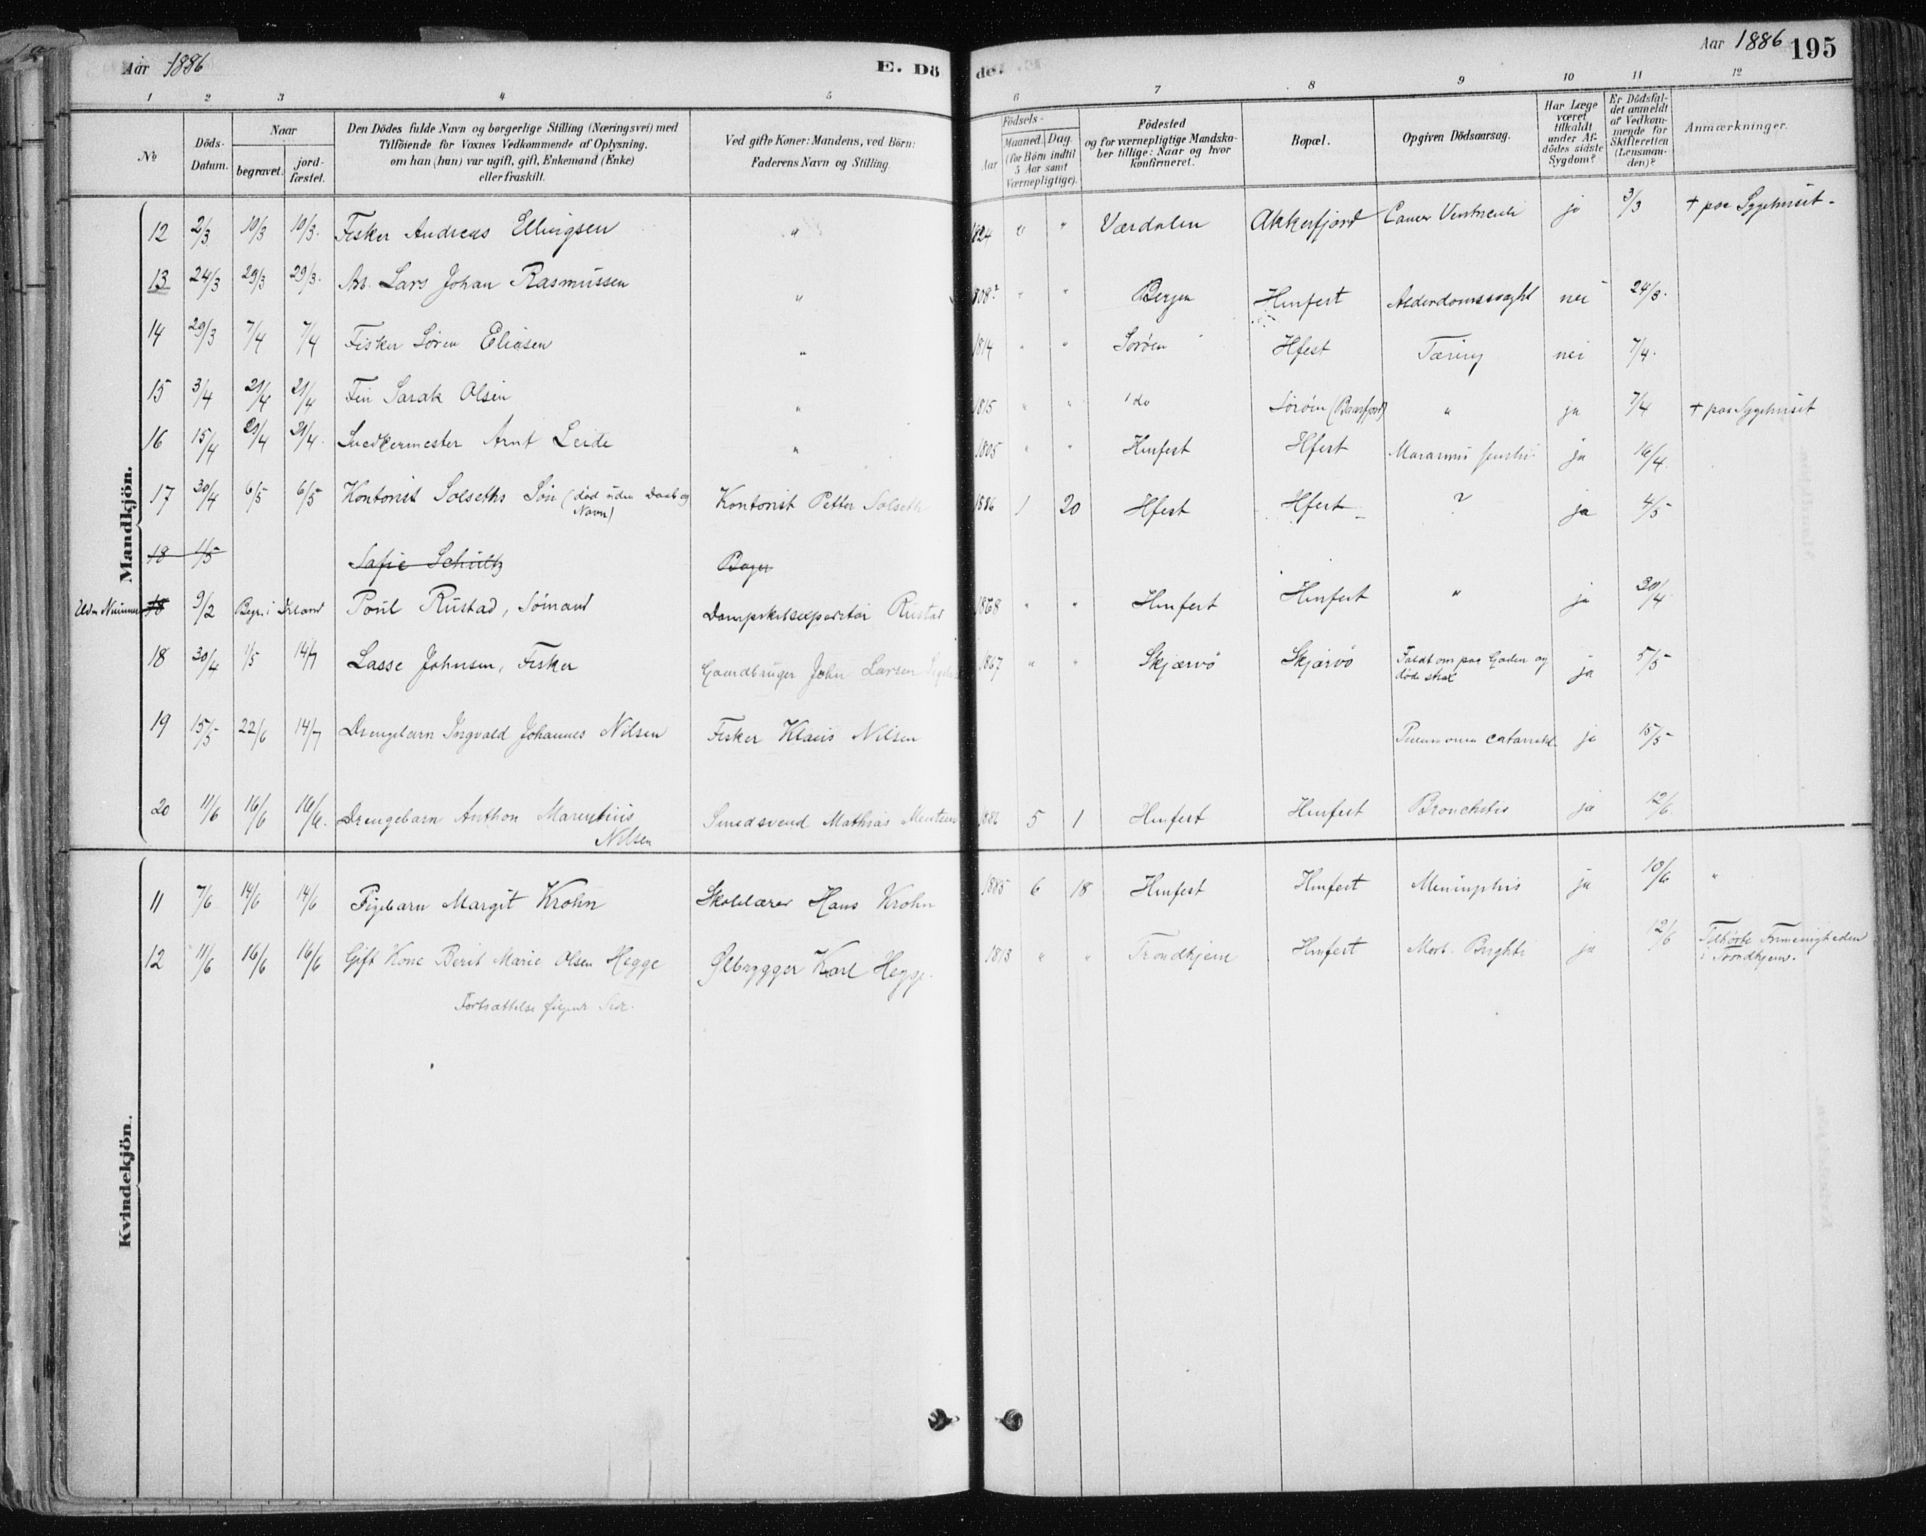 Aar 1886 E. Dö
de. Aar 1886 195
1 2 3 4 5 6 7 8 9 10 11 12
No
Döds-Datum.
Naar
begravet.
jord-fæstet.
Den Dödes fulde Navn og borgerlige Stilling (Næringsvei) med
Tilföiende for Voxnes Vedkommende af Oplysning,
om han (hun) var ugift, gift, Enkemand (Enke)
eller fraskilt.
Ved gifte Koner: Mandens, ved Börn:
Faderens Navn og Stilling.
Födsels-
Aar
Maaned. Dag.
(for Börn indtil
5 Aar samt
Værnepligtige).
Födested
og for værnepligtige Mandska-
ber tillige: Naar og hvor
konfirmeret.
Bopæl.
Opgiven Dödsaarsag.
Har Læge
været
tilkaldt
under Af-
dödes sidste
Sygdom?
Er Dödsfal-
det anmeldt
af Vedkom-
mende for
Skifteretten
(Lensman-
den)?
Anmærkninger.
Mandkjön.
12 2/3 10/3 10/3. Fisker Andreas Ellingsen " 1824 " " Værdalen Akkerfjord Cancer Ventriculi ja 3/3 + paa Sygehuset
13 24/3 29/3 29/3. Arb. Lars Johan Rasmussen " 1808? " " Bergen Hmfest Alderdomssvaght nei 24/3.
14 29/3 7/4 7/4 Fisker Søren Eliasen " 1814 " " Sørøen Hfest Tæring nei 7/4.
15 3/4 21/4 21/4 Fin Sarak Olsen " 1815 " " do Sørøen " ja 7/4 + paa Sygehuset
16 15/4 29/4 29/4. Snedkermester Arnt Leide " 1805 " " Hmfest Hfest Marasmus senilis ja 16/4.
17 30/4 6/5 6/5 Kontorist Solseths Søn (død uden Daab og
Navn) Kontorist Petter Solseth 1886 1 20 Hfest Hfest ? ja 4/5
18 1/5 Sofie Schultz Bager
Uden Nummer 18 9/2 Begr. i Poul Rustad, Sømand Dampskibsexpeditør Rustad 1868 " " Hmfest Hmfest " ja 30/4.
18 30/4 1/5 14/7 Lasse Johnsen, Fisker Gaardbruger John Larsen 1867 " " Skjærvö Skjærvö Faldt om paa Gaden og
død strax ja 5/5
19 15/5 22/6 14/7 Drengebarn Ingvald Johannes Nilsen Fisker Klaus Nilsen Pneumonia catarrhal. ja 15/5
20 11/6 16/6 16/6. Drengebarn Anthon Marentius
Nilsen Smedsvend Mathias 5 1 Hmfest Hmfest Bronchitis ja 12/6.
Kvindekjön.
11 7/6 14/6 14/6 Pigebarn Margit Krohn Skolelærer Hans Krohn 1885 6 18 Hmfest Hmfest ja 10/6 "
12 11/6 16/6 16/6 Gift Kone Berit Marie Olsen Hegge Ølbrygger Karl Hegge. 1813 " " Trondhjem Hmfest Morb. Brighti ja 12/6 Tilhørte Frimenigheden
i Trondhjem.
Fortsættelse